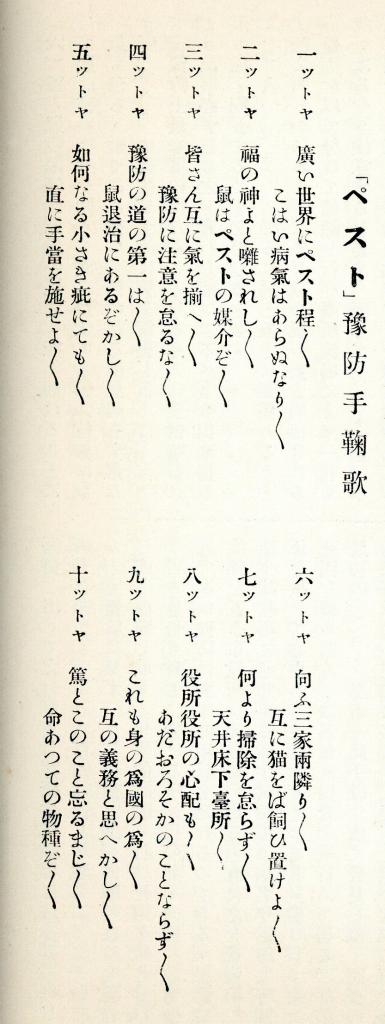 「ペスト」豫防手鞠歌
一ツトヤ 廣い世界にペスト程〳〵
こはい病氣はあらぬなり〳〵
二ツトヤ 福の神よと囃されし〳〵
鼠はペストの媒介ぞ〳〵
三ツトヤ 皆さん互に氣を揃へ〳〵
豫防に注意を怠るな〳〵
四ツトヤ 豫防の道の第一は〳〵
鼠退治にあるぞかし〳〵
五ツトヤ 如何なる小さき疵にても〳〵
直に手當を施せよ〳〵
六ツトヤ 向ふ三家兩隣り〳〵
互に猫をば飼ひ置けよ〳〵
七ツトヤ 何より掃除を怠らず〳〵
天井床下臺所〳〵
八ツトヤ 役所役所の心配も〳〵
あだおろそかのことならず〳〵
九ツトヤ これも身の爲國の爲〳〵
互の義務と思へかし〳〵
十ツトヤ 篤とこのこと忘るまじ〳〵
命あつての物種ぞ〳〵